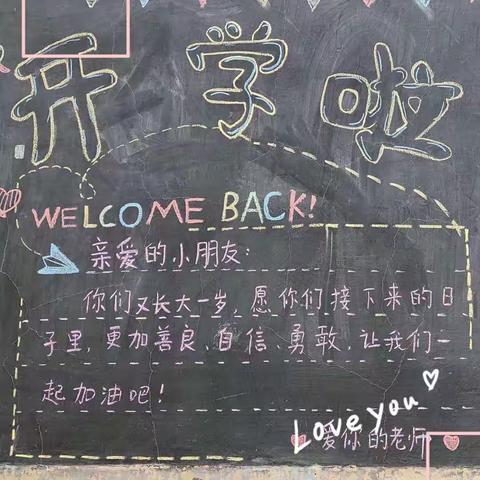 开学啦
WELCOME BACK!
亲爱的小朋友:
你们又长大一岁,愿你们接下来的日
子里,更加善良、自信、勇敢,让我们一
起加油吧!
Love you
爱你的老师